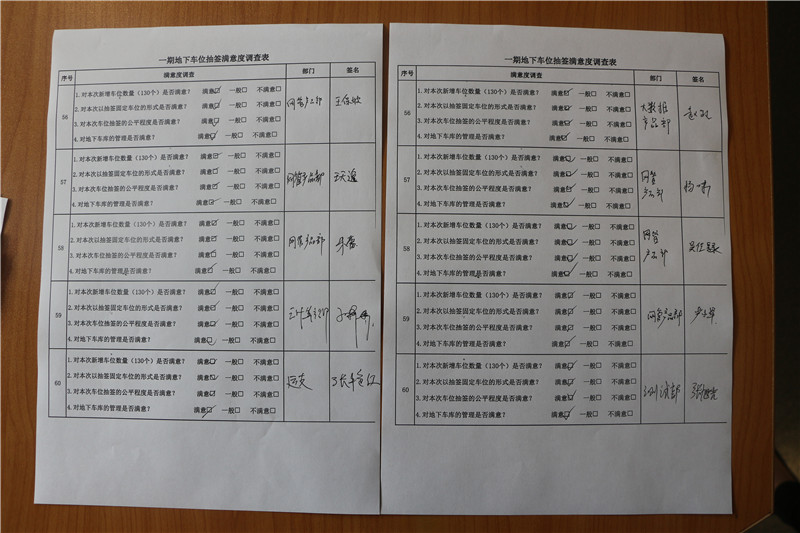 一期地下车位抽签满意度调查表
序号 满意度调查 部门 签名
56
1.对本次新增车位数量（130个）是否满意？ 满意☑ 一般□ 不满意□
2.对本次以抽签固定车位的形式是否满意？ 满意☑ 一般□ 不满意□
3.对本次车位抽签的公平程度是否满意？ 满意☑ 一般□ 不满意□
4.对地下车库的管理是否满意？ 满意☑ 一般□ 不满意□
57
网管产品部
1.对本次新增车位数量（130个）是否满意？ 满意☑ 一般□ 不满意□
2.对本次以抽签固定车位的形式是否满意？ 满意☑ 一般□ 不满意□
3.对本次车位抽签的公平程度是否满意？ 满意☑ 一般□ 不满意□
4.对地下车库的管理是否满意？ 满意☑ 一般□ 不满意□
58
1.对本次新增车位数量（130个）是否满意？ 满意☑ 一般□ 不满意□
2.对本次以抽签固定车位的形式是否满意？ 满意☑ 一般□ 不满意□
3.对本次车位抽签的公平程度是否满意？ 满意☑ 一般□ 不满意□
4.对地下车库的管理是否满意？ 满意☑ 一般□ 不满意□
59
1.对本次新增车位数量（130个）是否满意？ 满意☑ 一般□ 不满意□
2.对本次以抽签固定车位的形式是否满意？ 满意☑ 一般□ 不满意□
3.对本次车位抽签的公平程度是否满意？ 满意☑ 一般□ 不满意□
4.对地下车库的管理是否满意？ 满意☑ 一般□ 不满意□
60
1.对本次新增车位数量（130个）是否满意？ 满意☑ 一般□ 不满意□
2.对本次以抽签固定车位的形式是否满意？ 满意☑ 一般□ 不满意□
3.对本次车位抽签的公平程度是否满意？ 满意☑ 一般□ 不满意□
4.对地下车库的管理是否满意？ 满意☑ 一般□ 不满意□
一期地下车位抽签满意度调查表
序号 满意度调查 部门 签名
56
大数据
产品部
1.对本次新增车位数量（130个）是否满意？ 满意☑ 一般□ 不满意□
2.对本次以抽签固定车位的形式是否满意？ 满意☑ 一般□ 不满意□
3.对本次车位抽签的公平程度是否满意？ 满意☑ 一般□ 不满意□
4.对地下车库的管理是否满意？ 满意☑ 一般□ 不满意□
57
网管
产品部
1.对本次新增车位数量（130个）是否满意？ 满意☑ 一般□ 不满意□
2.对本次以抽签固定车位的形式是否满意？ 满意☑ 一般□ 不满意□
3.对本次车位抽签的公平程度是否满意？ 满意☑ 一般□ 不满意□
4.对地下车库的管理是否满意？ 满意☑ 一般□ 不满意□
58
网管
产品部
1.对本次新增车位数量（130个）是否满意？ 满意☑ 一般□ 不满意□
2.对本次以抽签固定车位的形式是否满意？ 满意☑ 一般□ 不满意□
3.对本次车位抽签的公平程度是否满意？ 满意☑ 一般□ 不满意□
4.对地下车库的管理是否满意？ 满意☑ 一般□ 不满意□
59
网管产品部
1.对本次新增车位数量（130个）是否满意？ 满意☑ 一般□ 不满意□
2.对本次以抽签固定车位的形式是否满意？ 满意☑ 一般□ 不满意□
3.对本次车位抽签的公平程度是否满意？ 满意☑ 一般□ 不满意□
4.对地下车库的管理是否满意？ 满意☑ 一般□ 不满意□
60
1.对本次新增车位数量（130个）是否满意？ 满意☑ 一般□ 不满意□
2.对本次以抽签固定车位的形式是否满意？ 满意☑ 一般□ 不满意□
3.对本次车位抽签的公平程度是否满意？ 满意☑ 一般□ 不满意□
4.对地下车库的管理是否满意？ 满意☑ 一般□ 不满意□